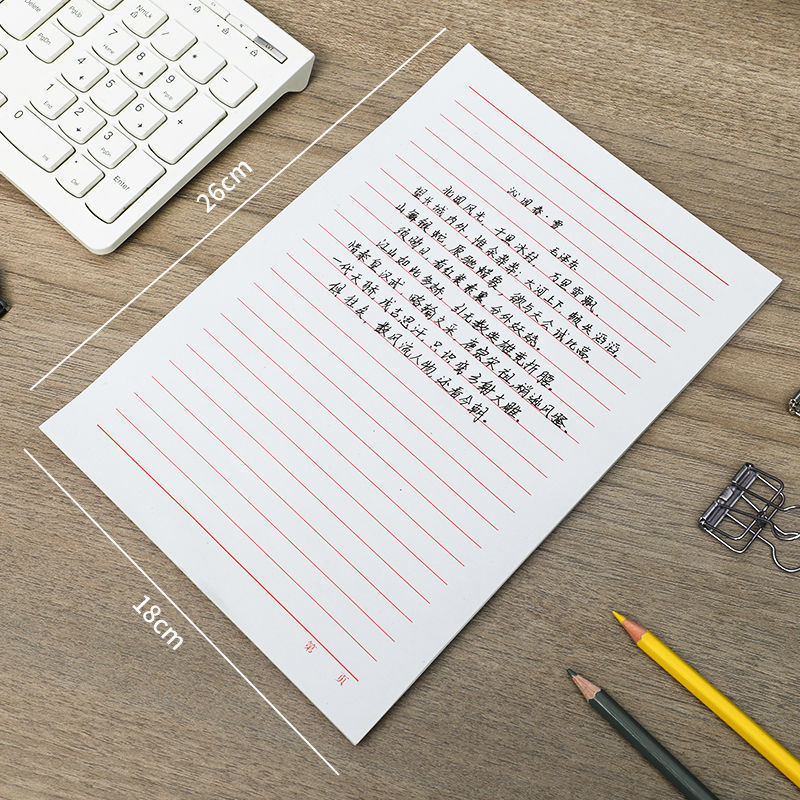 沁园春·雪
毛泽东
北国风光,千里冰封,万里雪飘。
望长城内外,惟余莽莽,大河上下,顿失滔滔。
山舞银蛇,原驰蜡象,欲与天公试比高。
须晴日,看红装素裹,分外妖娆。
江山如此多娇,引无数英雄竞折腰。
惜秦皇汉武,略输文采,唐宗宋祖,稍逊风骚。
一代天骄,成吉思汗,只识弯弓射大雕。
俱往矣,数风流人物,还看今朝。
第 页
26cm
18cm
Delete PgUp NmLk
PgDn 7 Home 8 9 PgUp * -
4 5 6 +
1 End 2 3 PgDn Enter
0 Ins . Del